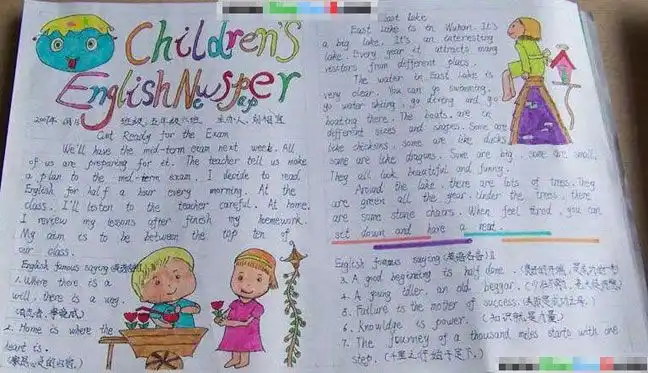 Children's
English Newspaper
Get Ready for the Exam
We'll have the mid-term exam next week. All
of us are preparing for it. The teacher tell us make
a plan to the mid-term exam. I decide to read
English for half a hour every morning. At the
class. I'll listen to the teacher careful. At home.
I review my lessons after finish my homework.
My aim is to be between the top ten of
our class.
English famous saying
1. Where there is a
will, there is a way.
2. Home is where the
heart is.
East lake
East Lake is in Wuhan. It's
a big lake, It's an interesting
lake. Every year it attracts many
visitors from different places.
The water in East Lake is
very clear. You can go swimming,
go water skiing, go diving and go
boating there. The boats are in
different sizes and shapes. Some are
like chickens, some are like ducks
some are like dragons. Some are big, some are small,
They all look beautiful and funny.
Around the lake, there are lots of trees. They
are green all the year. Under the trees, there
are some stone chairs. When feel tired, you can
set down and have a rest.
English famous saying
3. A good beginning is half done.
4. A young idler, an old beggar.
5. Failure is the mother of success.
6. Knowldge is power. (知识就是力量)
7. The journey of a thousand miles starts with one
step. (千里之行始于足下。)